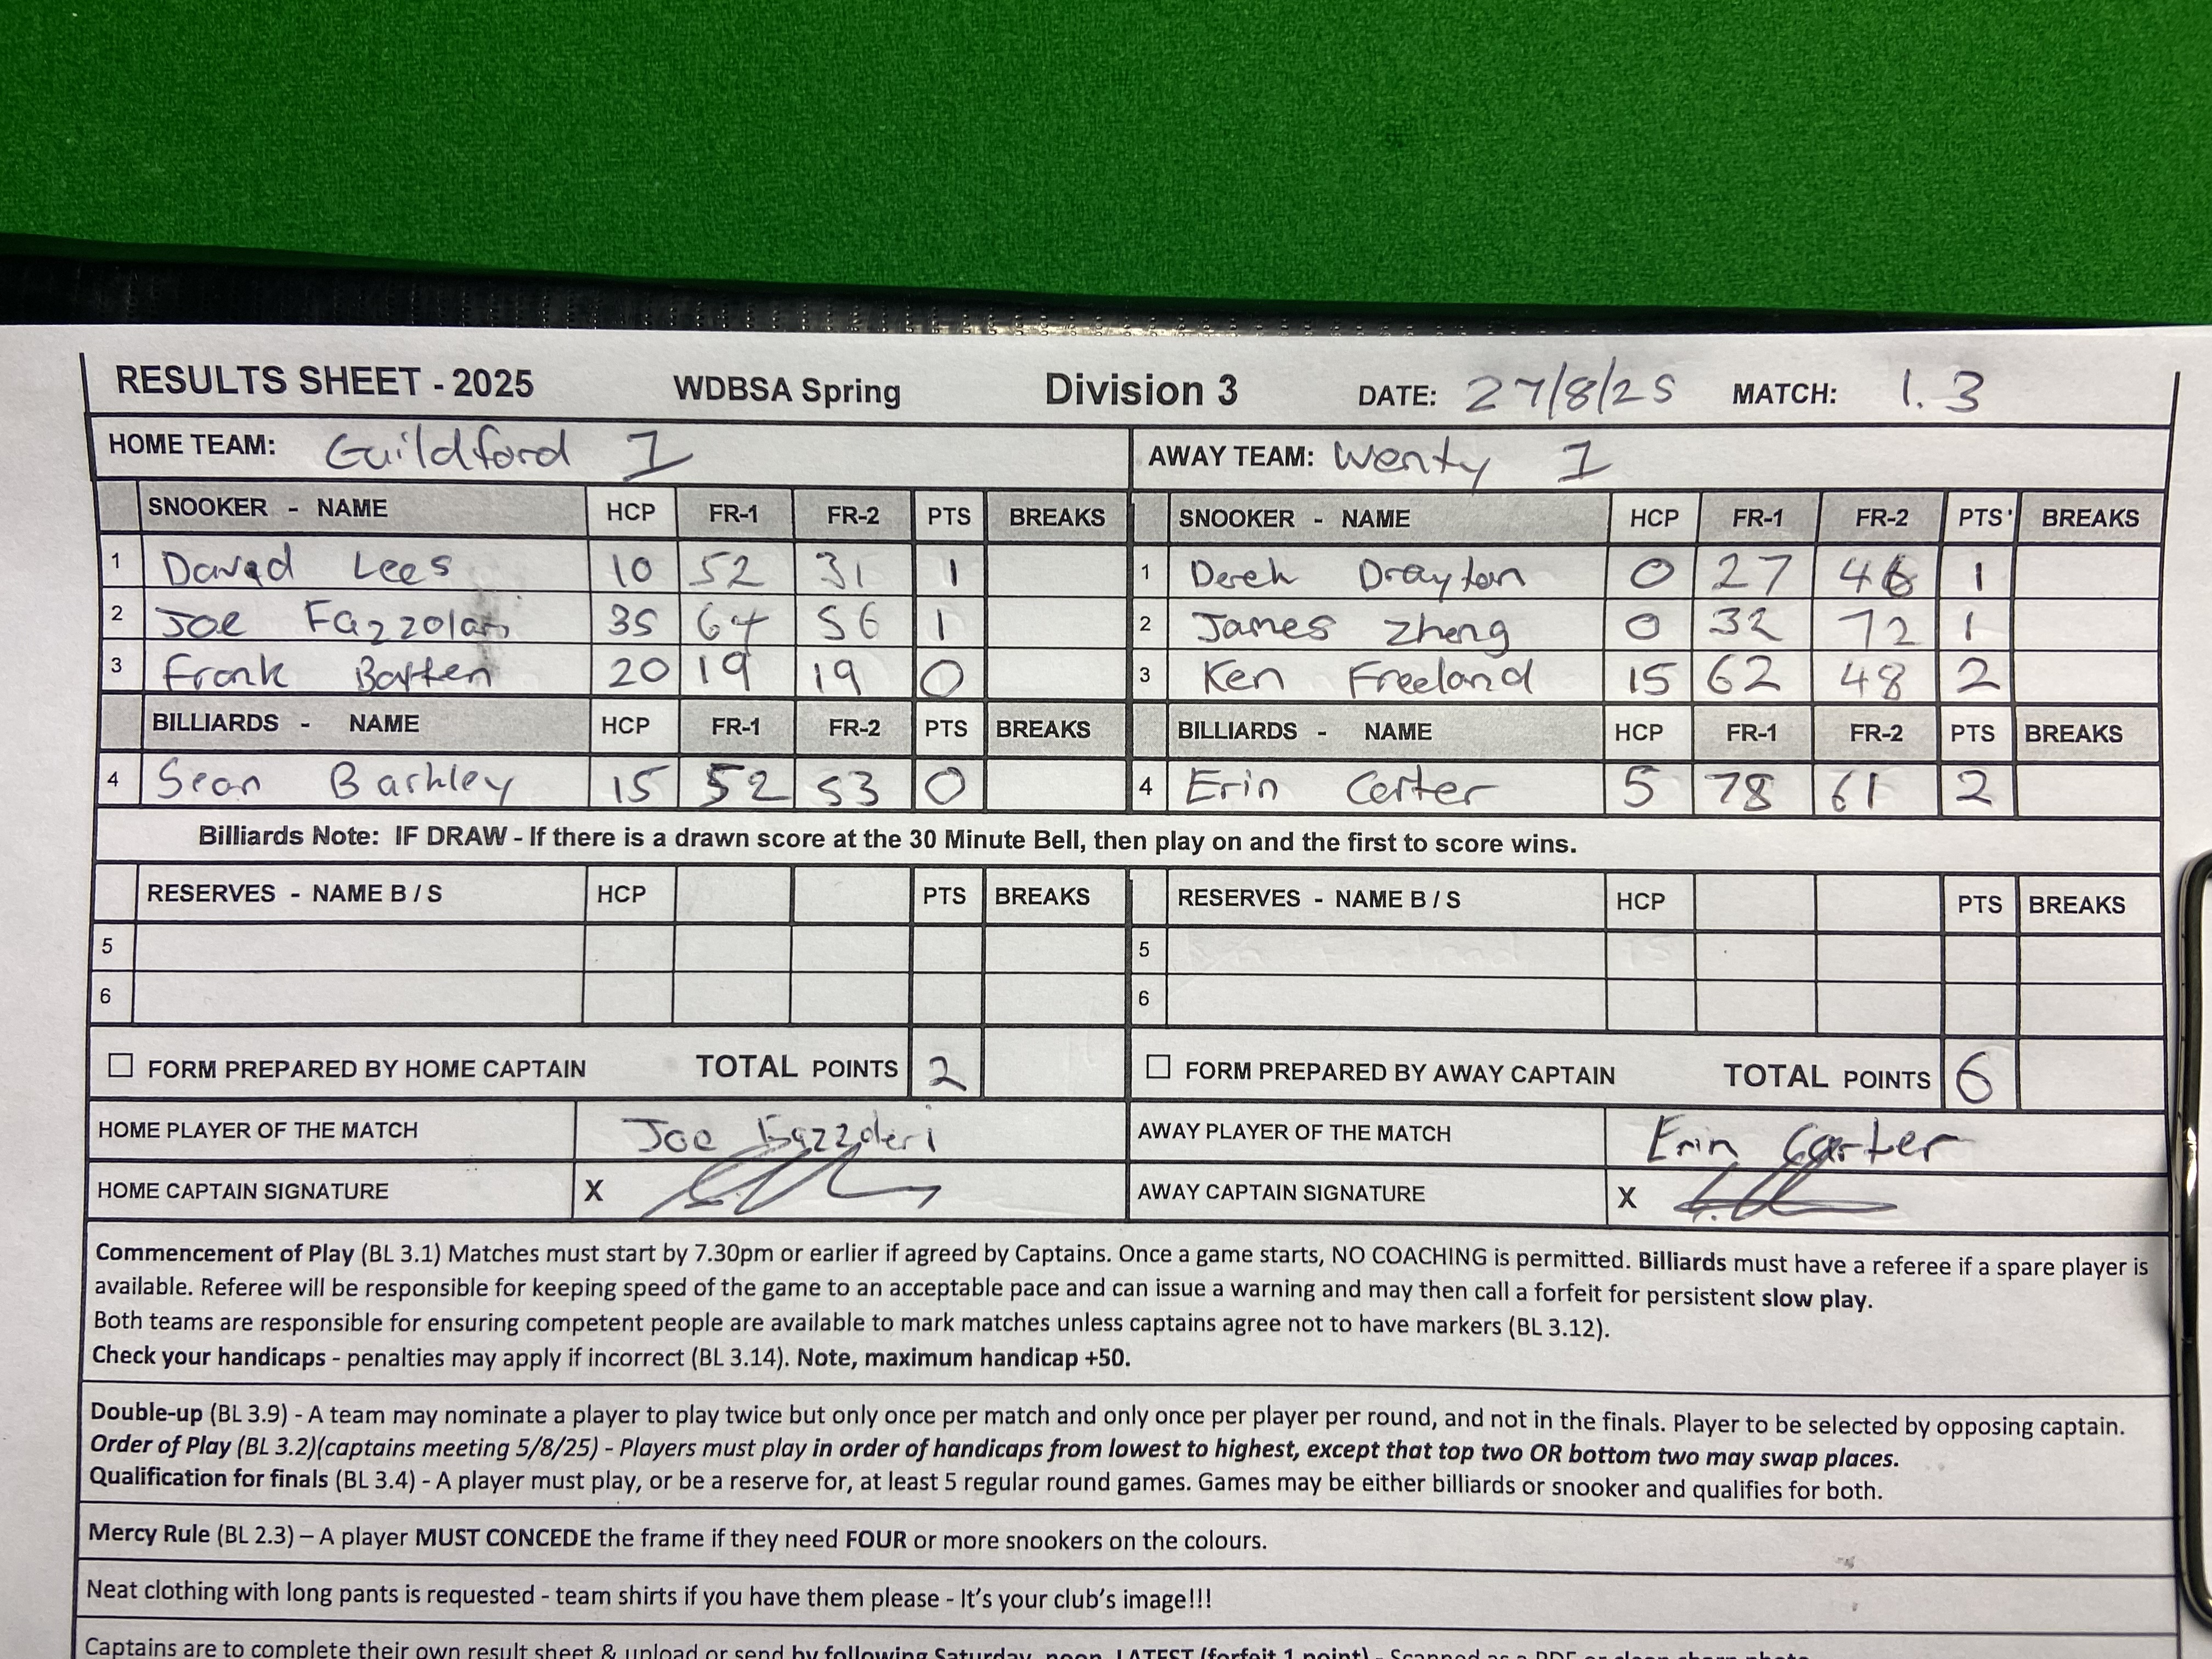 RESULTS SHEET - 2025 WDBSA Spring Division 3 DATE: 27/8/25 MATCH: 1.3
HOME TEAM: Guildford 1 AWAY TEAM: Wenty 1
SNOOKER - NAME HCP FR-1 FR-2 PTS BREAKS SNOOKER - NAME HCP FR-1 FR-2 PTS BREAKS
1 David Lees 10 52 31 1 1 Derek Drayton 0 27 46 1
2 Joe Fazzolari 35 64 56 1 2 James Zheng 0 32 72 1
3 Frank Batten 20 19 19 0 3 Ken Freeland 15 62 48 2
BILLIARDS - NAME HCP FR-1 FR-2 PTS BREAKS BILLIARDS - NAME HCP FR-1 FR-2 PTS BREAKS
4 Sean Barkley 15 52 53 0 4 Erin Carter 5 78 61 2
Billiards Note: IF DRAW - If there is a drawn score at the 30 Minute Bell, then play on and the first to score wins.
RESERVES - NAME B / S HCP PTS BREAKS RESERVES - NAME B / S HCP PTS BREAKS
5 5
6 6
FORM PREPARED BY HOME CAPTAIN TOTAL POINTS 2 FORM PREPARED BY AWAY CAPTAIN TOTAL POINTS 6
HOME PLAYER OF THE MATCH Joe Fazzoleri AWAY PLAYER OF THE MATCH Erin Carter
HOME CAPTAIN SIGNATURE X AWAY CAPTAIN SIGNATURE X
Commencement of Play (BL 3.1) Matches must start by 7.30pm or earlier if agreed by Captains. Once a game starts, NO COACHING is permitted. Billiards must have a referee if a spare player is
available. Referee will be responsible for keeping speed of the game to an acceptable pace and can issue a warning and may then call a forfeit for persistent slow play.
Both teams are responsible for ensuring competent people are available to mark matches unless captains agree not to have markers (BL 3.12).
Check your handicaps - penalties may apply if incorrect (BL 3.14). Note, maximum handicap +50.
Double-up (BL 3.9) - A team may nominate a player to play twice but only once per match and only once per player per round, and not in the finals. Player to be selected by opposing captain.
Order of Play (BL 3.2)(captains meeting 5/8/25) - Players must play in order of handicaps from lowest to highest, except that top two OR bottom two may swap places.
Qualification for finals (BL 3.4) - A player must play, or be a reserve for, at least 5 regular round games. Games may be either billiards or snooker and qualifies for both.
Mercy Rule (BL 2.3) – A player MUST CONCEDE the frame if they need FOUR or more snookers on the colours.
Neat clothing with long pants is requested - team shirts if you have them please - It's your club's image!!!
Captains are to complete their own result sheet & upload or send by following Saturday, noon, LATEST (forfeit 1 point) - Scanned as a PDF or clean sharp photo